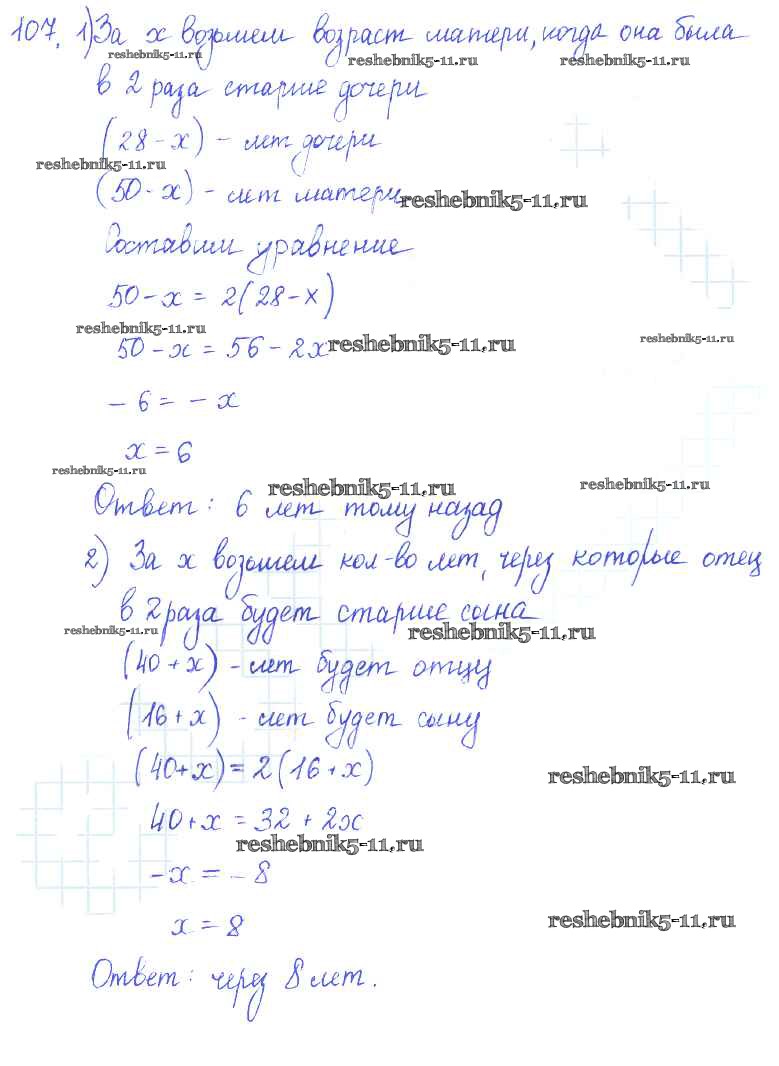 107. 1) За x возьмем возраст матери, когда она была
reshebnik5-11.ru reshebnik5-11.ru reshebnik5-11.ru
в 2 раза старше дочери
(28 - x) - лет дочери
reshebnik5-11.ru
(50 - x) - лет матери reshebnik5-11.ru
Составим уравнение
50 - x = 2(28 - x)
reshebnik5-11.ru
50 - x = 56 - 2x reshebnik5-11.ru reshebnik5-11.ru
- 6 = - x
x = 6
reshebnik5-11.ru
reshebnik5-11.ru reshebnik5-11.ru
Ответ: 6 лет тому назад
2) За x возьмем кол-во лет, через которые отец
в 2 раза будет старше сына
reshebnik5-11.ru reshebnik5-11.ru
(40 + x) - лет будет отцу
(16 + x) - лет будет сыну
(40 + x) = 2(16 + x) reshebnik5-11.ru
40 + x = 32 + 2x
reshebnik5-11.ru
- x = - 8
x = 8 reshebnik5-11.ru
Ответ: через 8 лет.